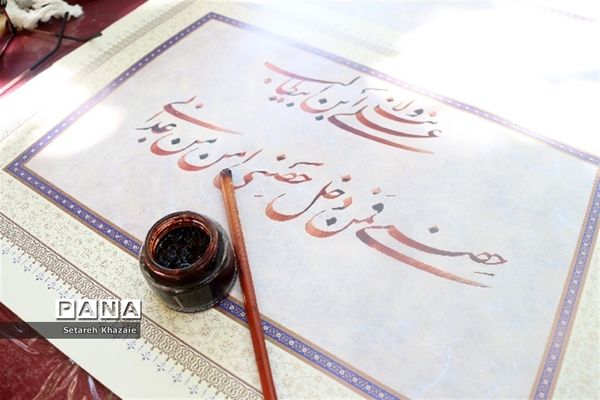 ولایة
علی بن ابیطالب
حصنی فمن دخل حصنی امن من عذابی
PANA
Setareh Khazaie